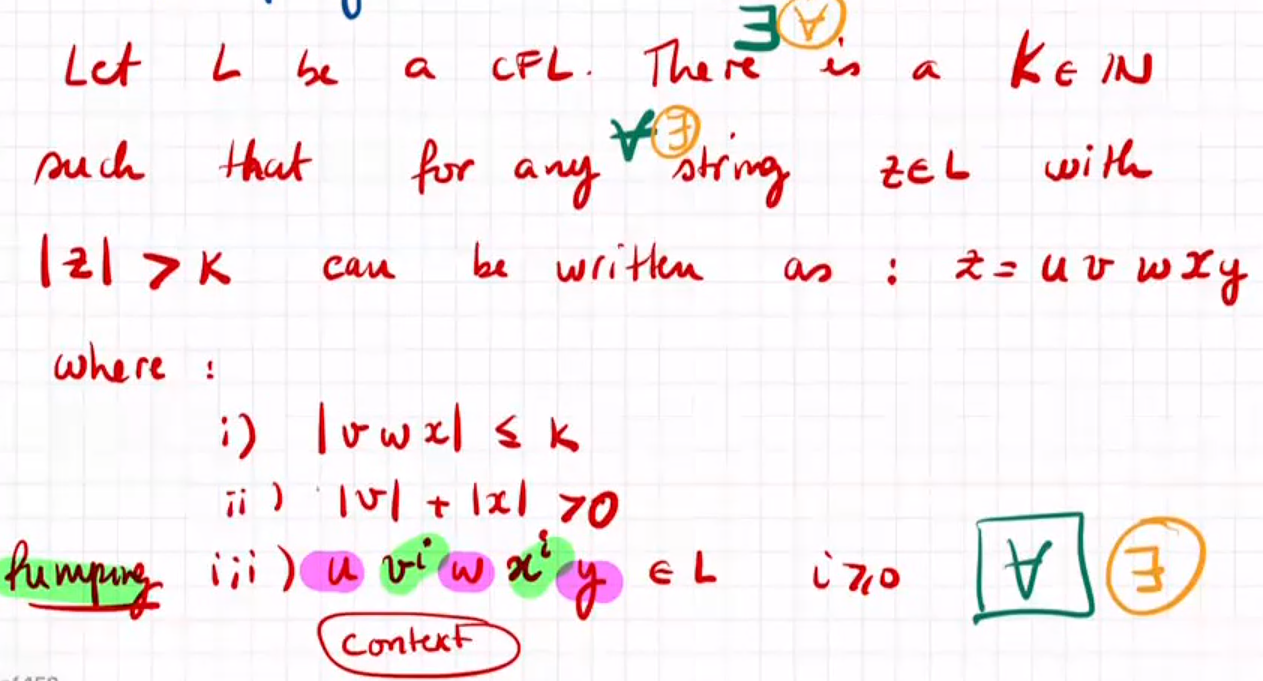 ∃ ∀
Let L be a CFL. There is a K ∈ IN
∀ ∃
such that for any string z ∈ L with
|z| > K can be written as : z = u v w x y
where :
i) |v w x| ≤ K
ii) |v| + |x| > 0
Pumping iii) u vⁱ w xⁱ y ∈ L i ≥ 0 ∀ ∃
Context